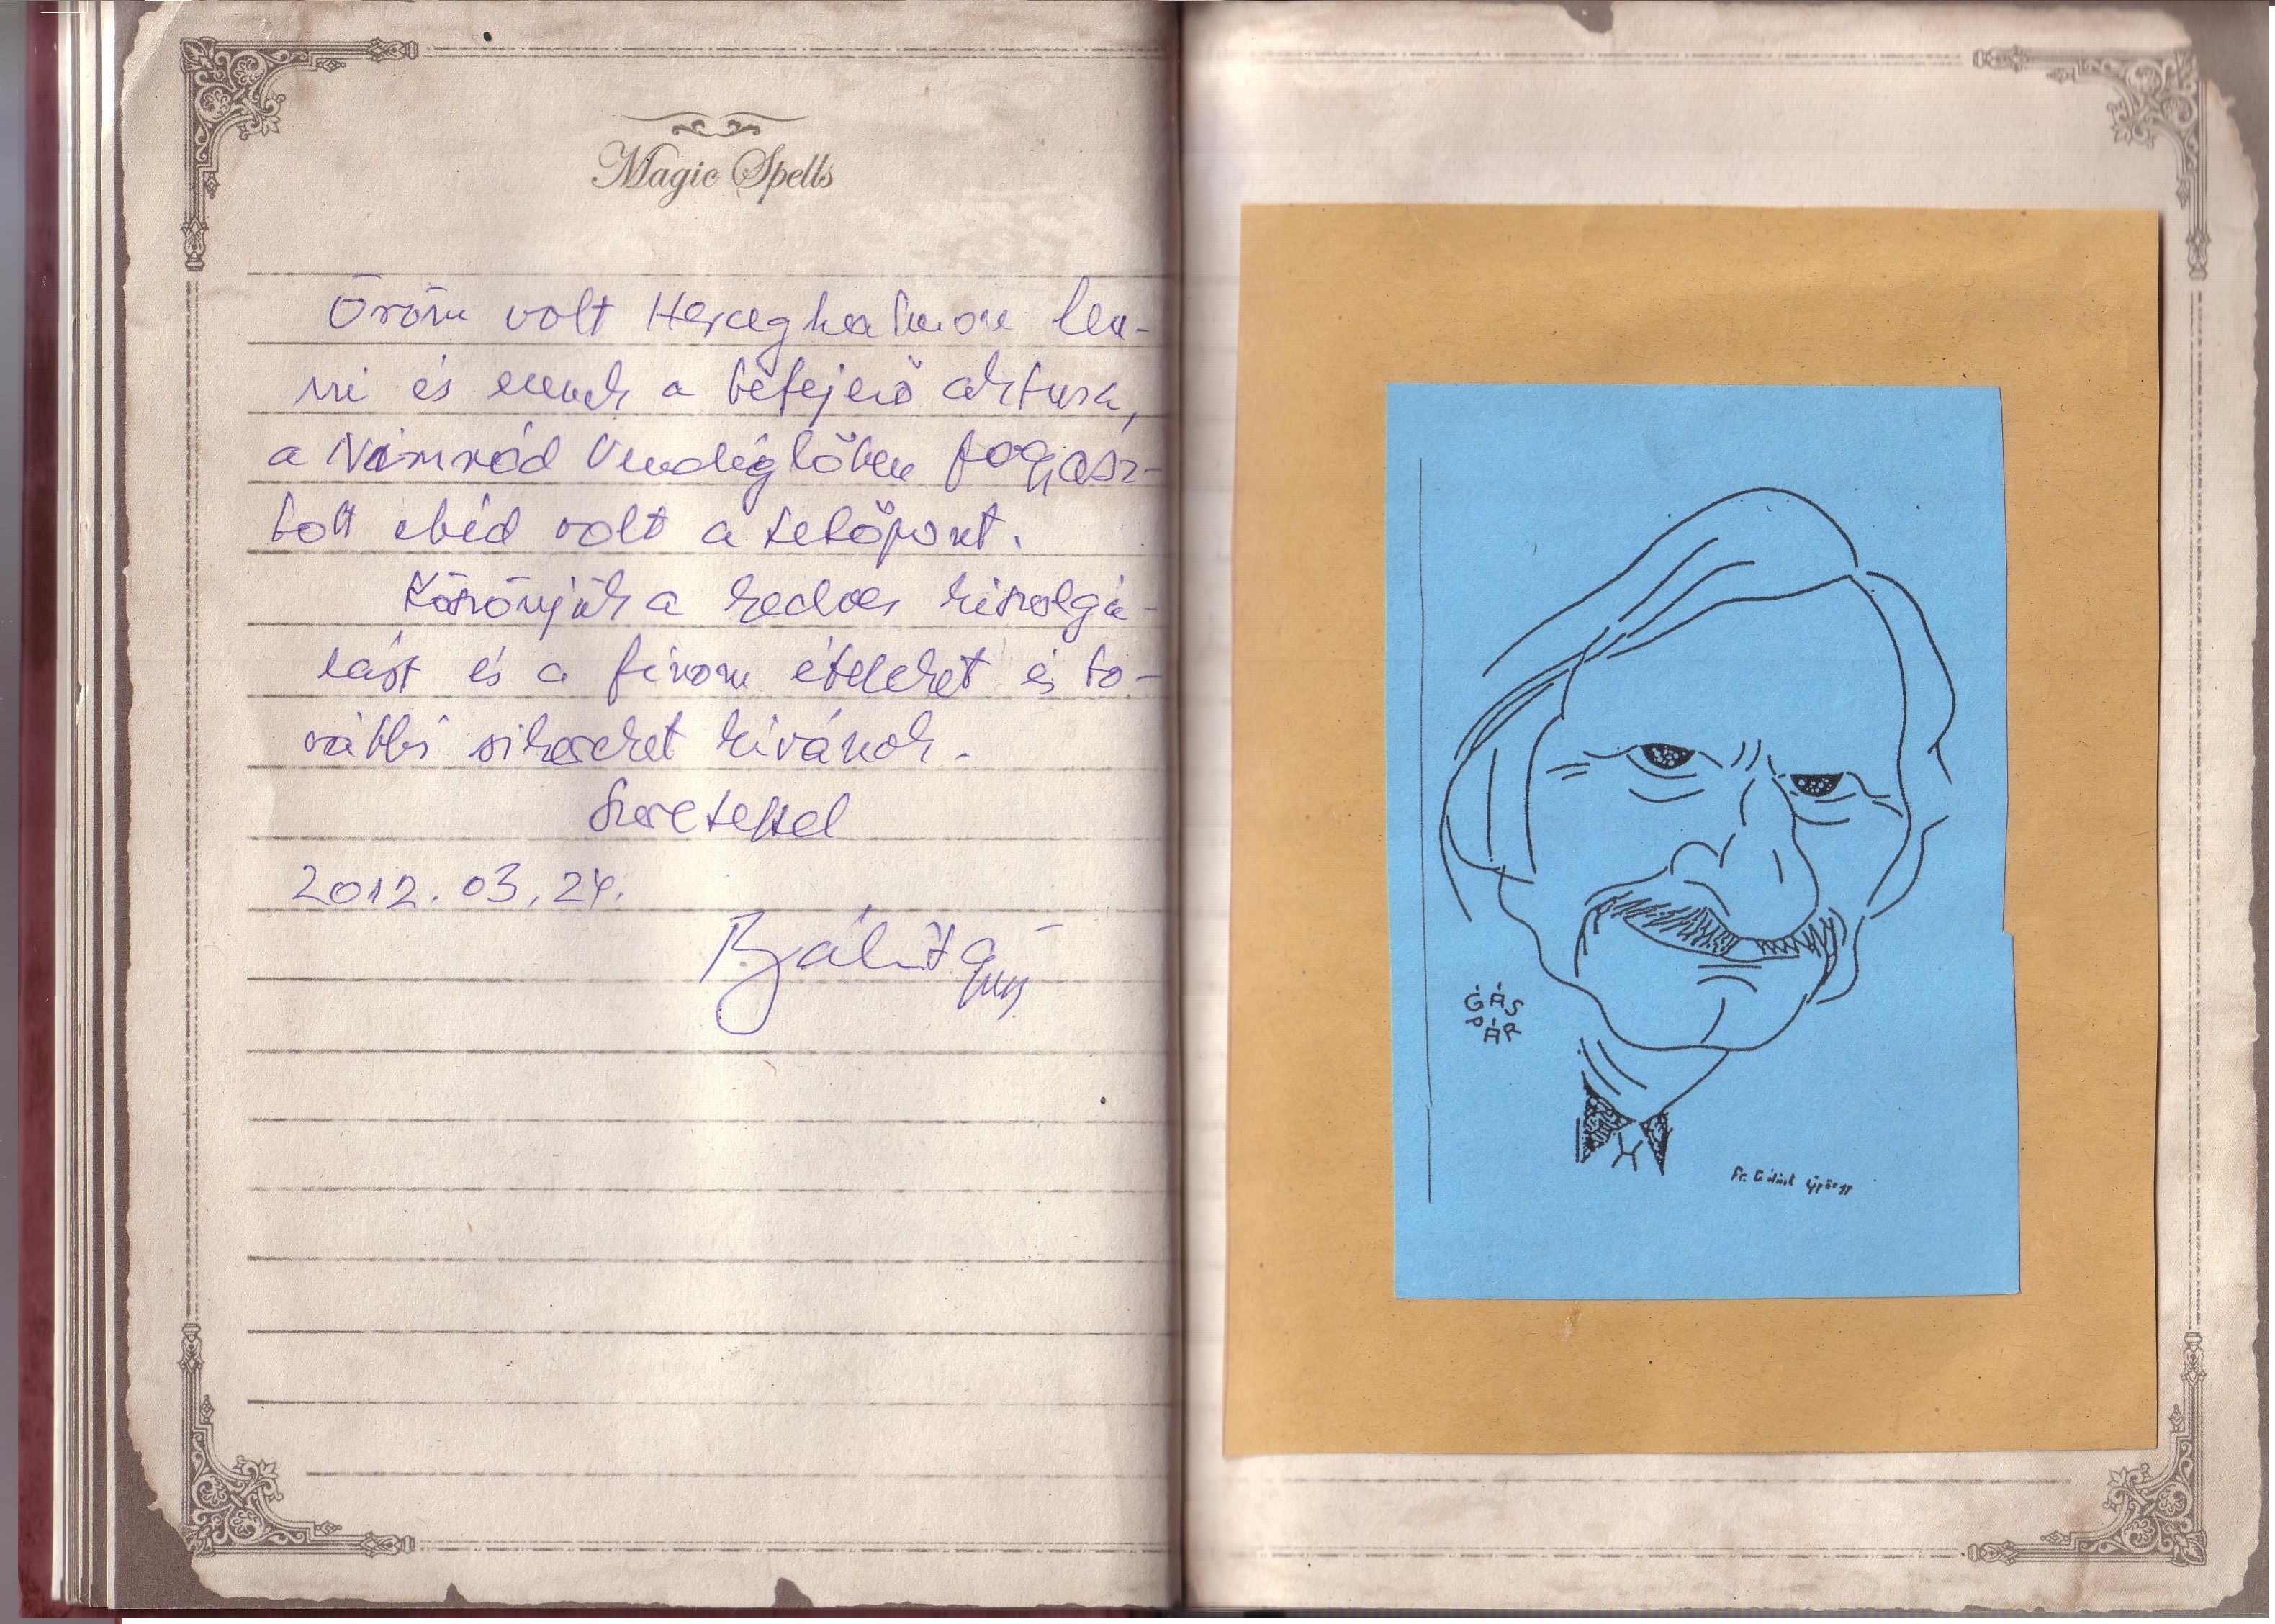 Magic Spells
Öröm volt Herceghalmon len-
ni és ennek a befejező aktusa,
a Nimród Vendéglőben fogyasz-
tott ebéd volt a tetőpont.
Köszönjük a kedves kiszolgá-
lást és a finom ételeket és to-
vábbi sikereket kívánok.
Szeretettel
2012.03.24.
Bálint Gy
GÁS
PÁR
Dr. Bálint György